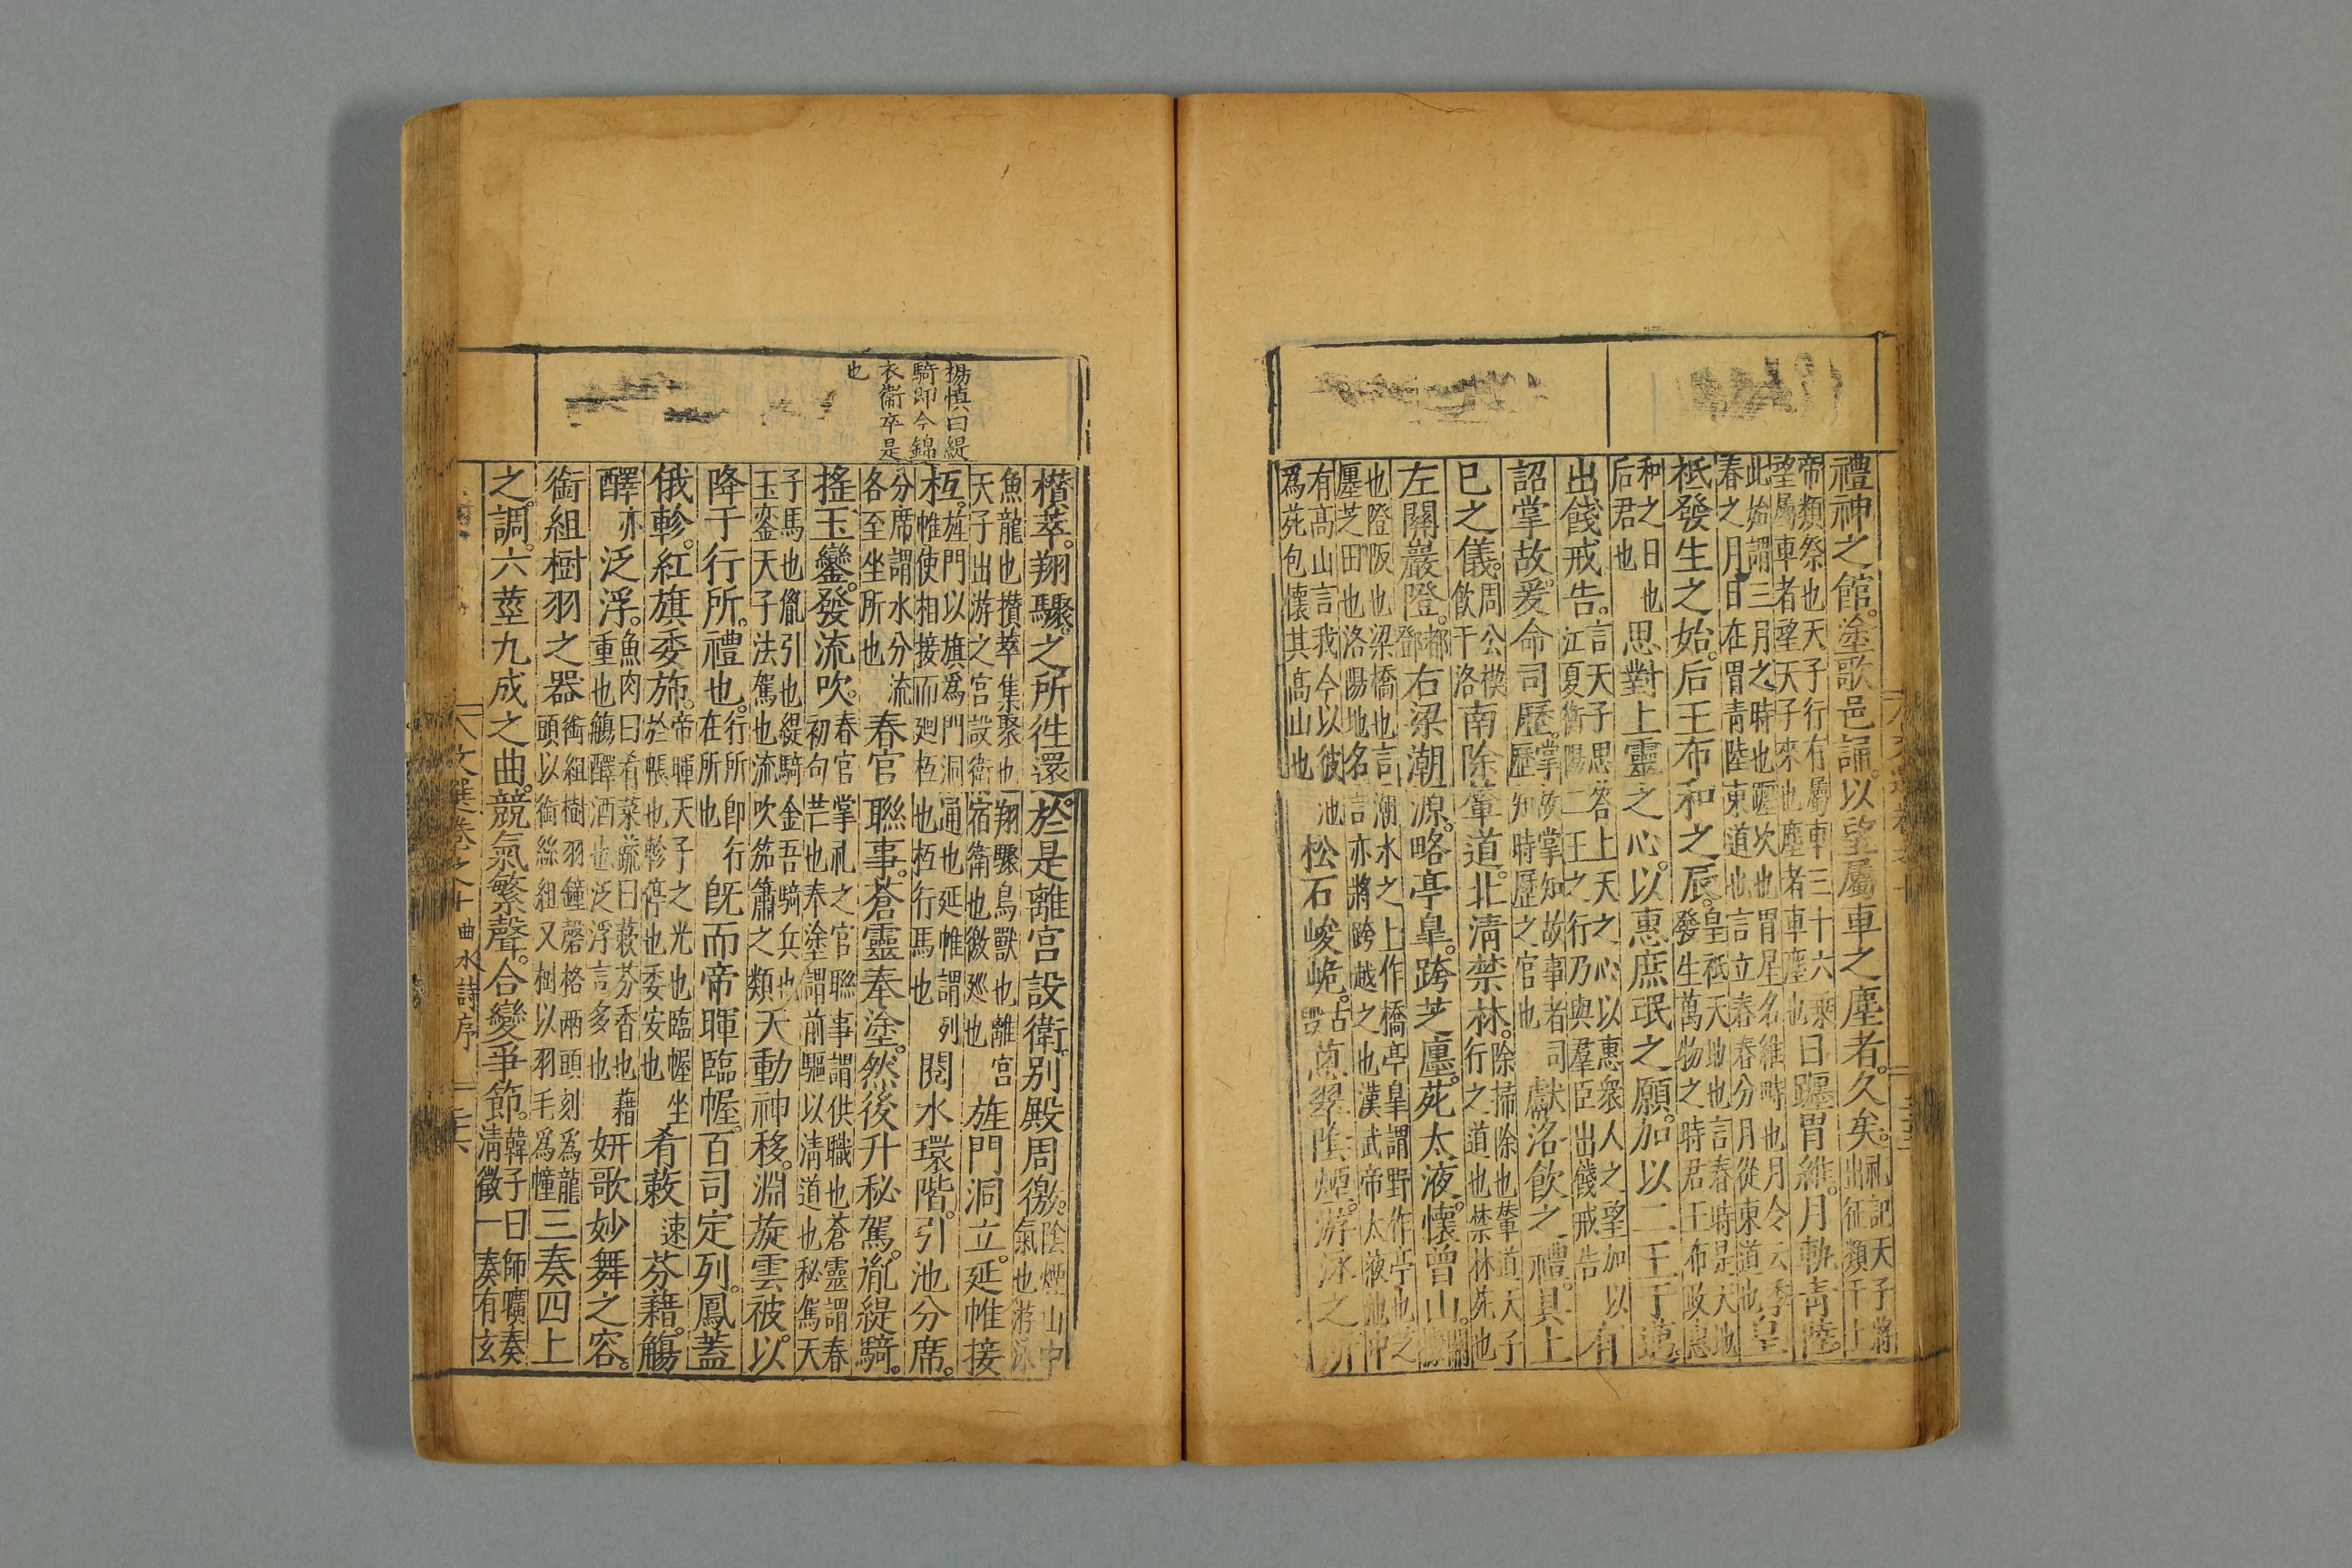 禮神之館。塗歌邑誦。以望屬車之塵者。久矣。礼記天子將出征類于上
帝類祭也天子行有屬車三十六乘望屬車者望天子來也塵者車塵也日躔胃維。月軌青陸。
此始謂三月之時也躔次也胃星名維畤也月令云季春之月日在胃青陸東道也言立春春分月從東道也皇
祗發生之始。后王布和之辰。皇祗天地也言春時是天地發生萬物之時君王布政惠
和之日也后君也思對上靈之心。以惠庶氓之願。加以二王于邁
出餞戒告。言天子思答上天之心以惠衆人之望加以江夏衡陽二王之行乃與羣臣出餞戒告有
詔掌故。爰命司歷。掌故掌知故事者司歷知時歷之官也獻洛飲之禮。具上
巳之儀。周公禊飲于洛南除輦道。北清禁林。除掃除也輦道天子行之道也禁林苑也
左關巖隥。都鄧右梁潮源。略亭皋。跨芝廛。苑太液。懷曾山。關
也隥阪也梁橋也言潮水之上作橋亭皋謂野作亭也芝廛芝田也洛陽地名言亦將跨越之也漢武帝太液池中
有高山言我今以彼池爲苑包懷其高山也松石峻垝。古毁葱翠陰煙。游泳之所
楊慎曰緹
騎即今錦
衣衞卒是
也
欑萃。翔驟。之所徃還。於是離宮設衛。别殿周徼。陰煙山中氣也游泳
魚龍也攅萃集聚也翔驟鳥獸也離宮天子出游之宮設衛宿衛也徼廵也旌門洞立。延帷接
枑。旌門以旗爲門洞通也延帷謂列帷使相接而廻枑也枑行馬也閱水環階。引池分席。
分席謂水分流各至坐所也春官聯事。蒼靈奉塗。然後升秘駕。胤緹騎。
搖玉鑾。發流吹。春官掌礼之官聯事謂供職也蒼靈謂春初句芒也奉塗謂前驅以清道也秘駕天
子馬也胤引也緹騎金吾騎兵也玉鑾天子法駕也流吹笳簫之類天動神移。淵旋雲被。以
降于行所。禮也。行所即行在所也既而帝暉臨幄。百司定列。鳳蓋
俄軫。紅旗委斾。帝暉天子之光也臨幄坐於帳也軫停也委安也肴蔌速芬藉。觴
醳亦泛浮。魚肉曰肴菜蔬曰蔌芬香也藉重也觴醳酒也泛浮言多也妍歌妙舞之容。
銜組樹羽之器。銜組樹羽鐘磬格兩頭刻爲龍頭以銜絲組又樹以羽毛爲幢三奏四上
之。調。六莖九成之曲。競氣繁聲。合變爭節。韓子曰師曠奏清徵一奏有玄
文選卷之十 曲水詩序